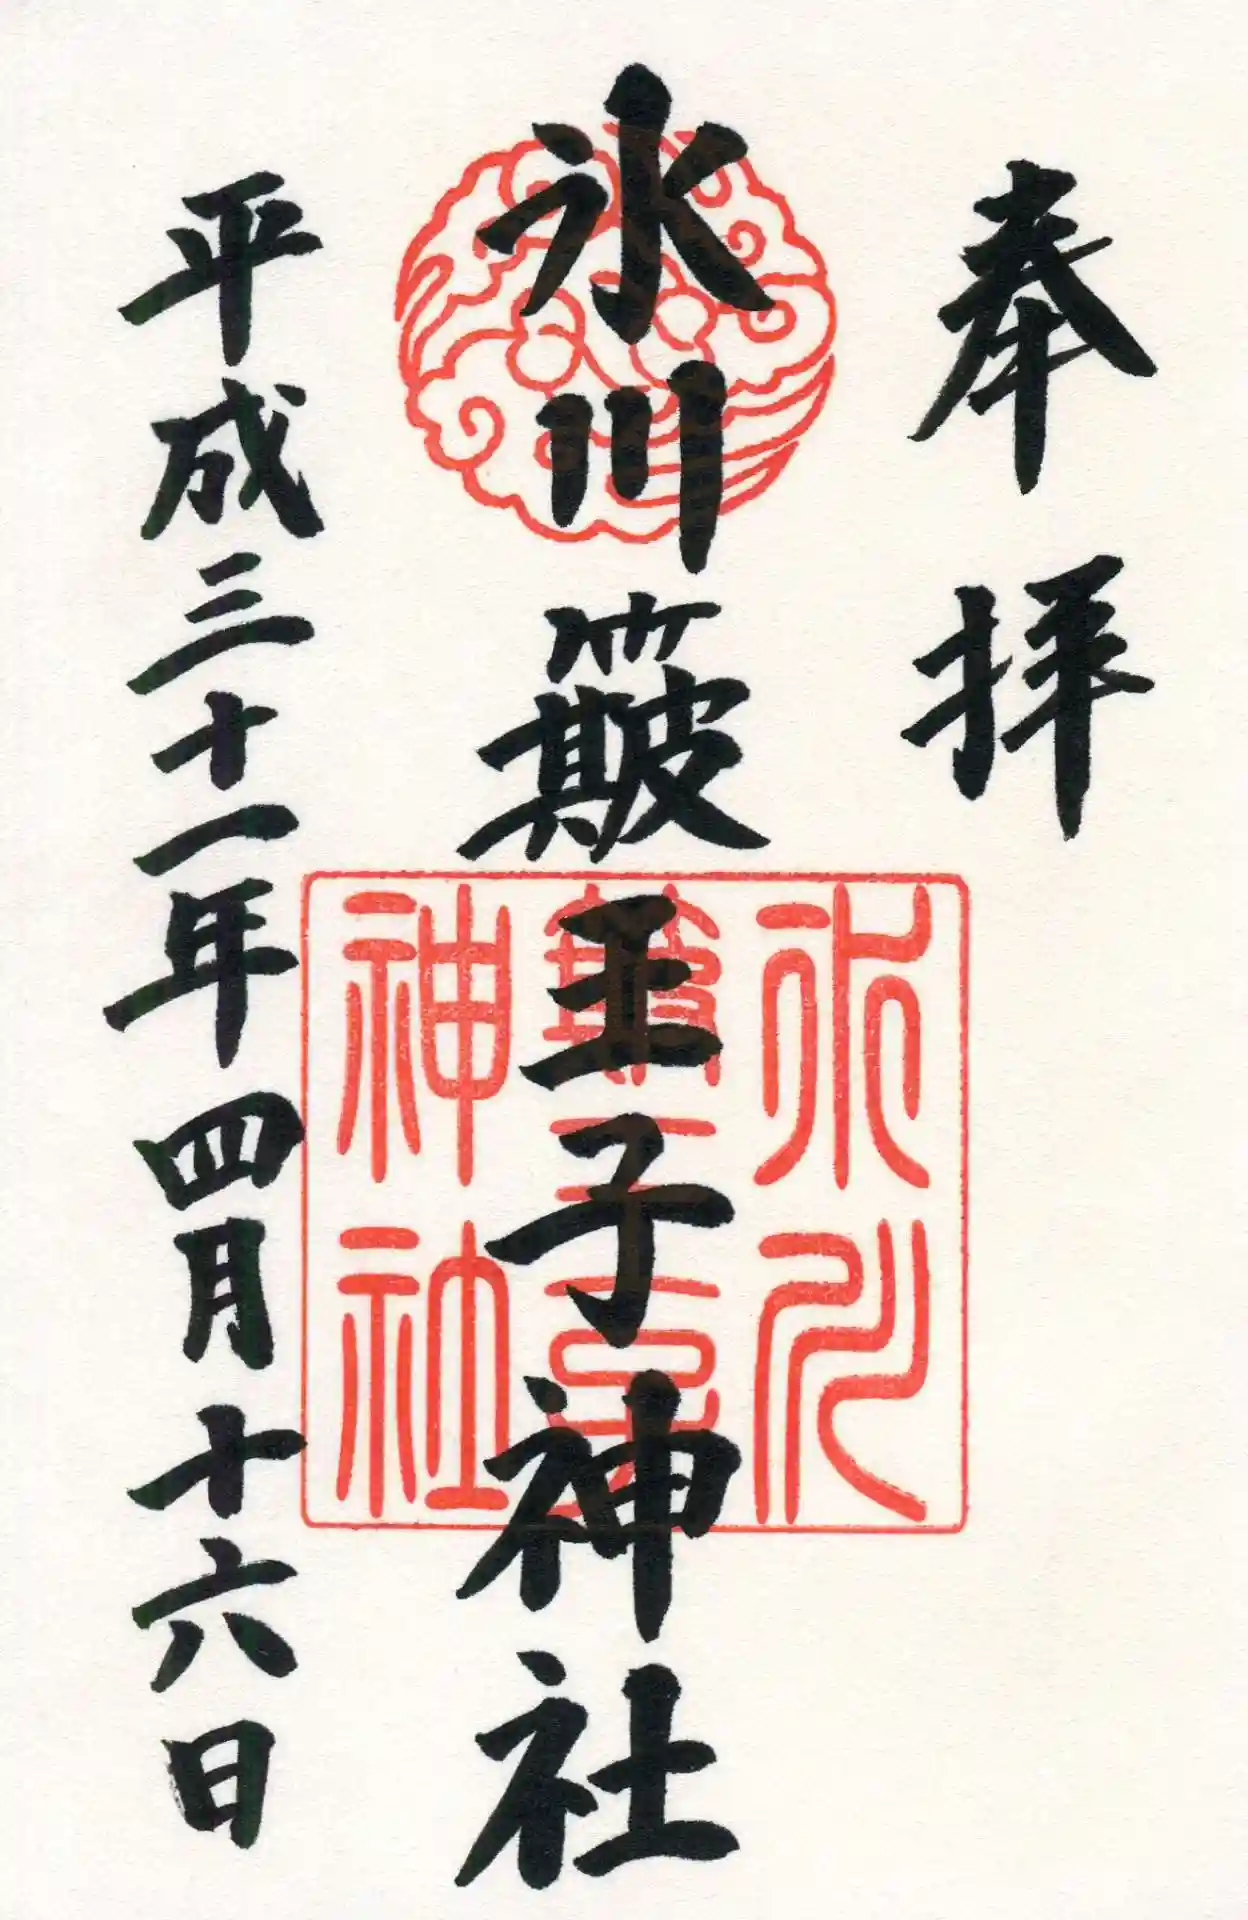 奉拝
氷川簸王子神社
平成三十一年四月十六日
氷川
簸王子
神社